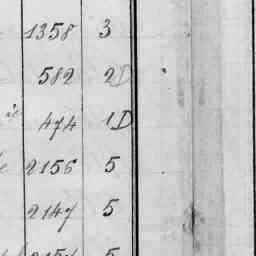 1358 3
582 2D
474 1D
2156 5
2147 5
5